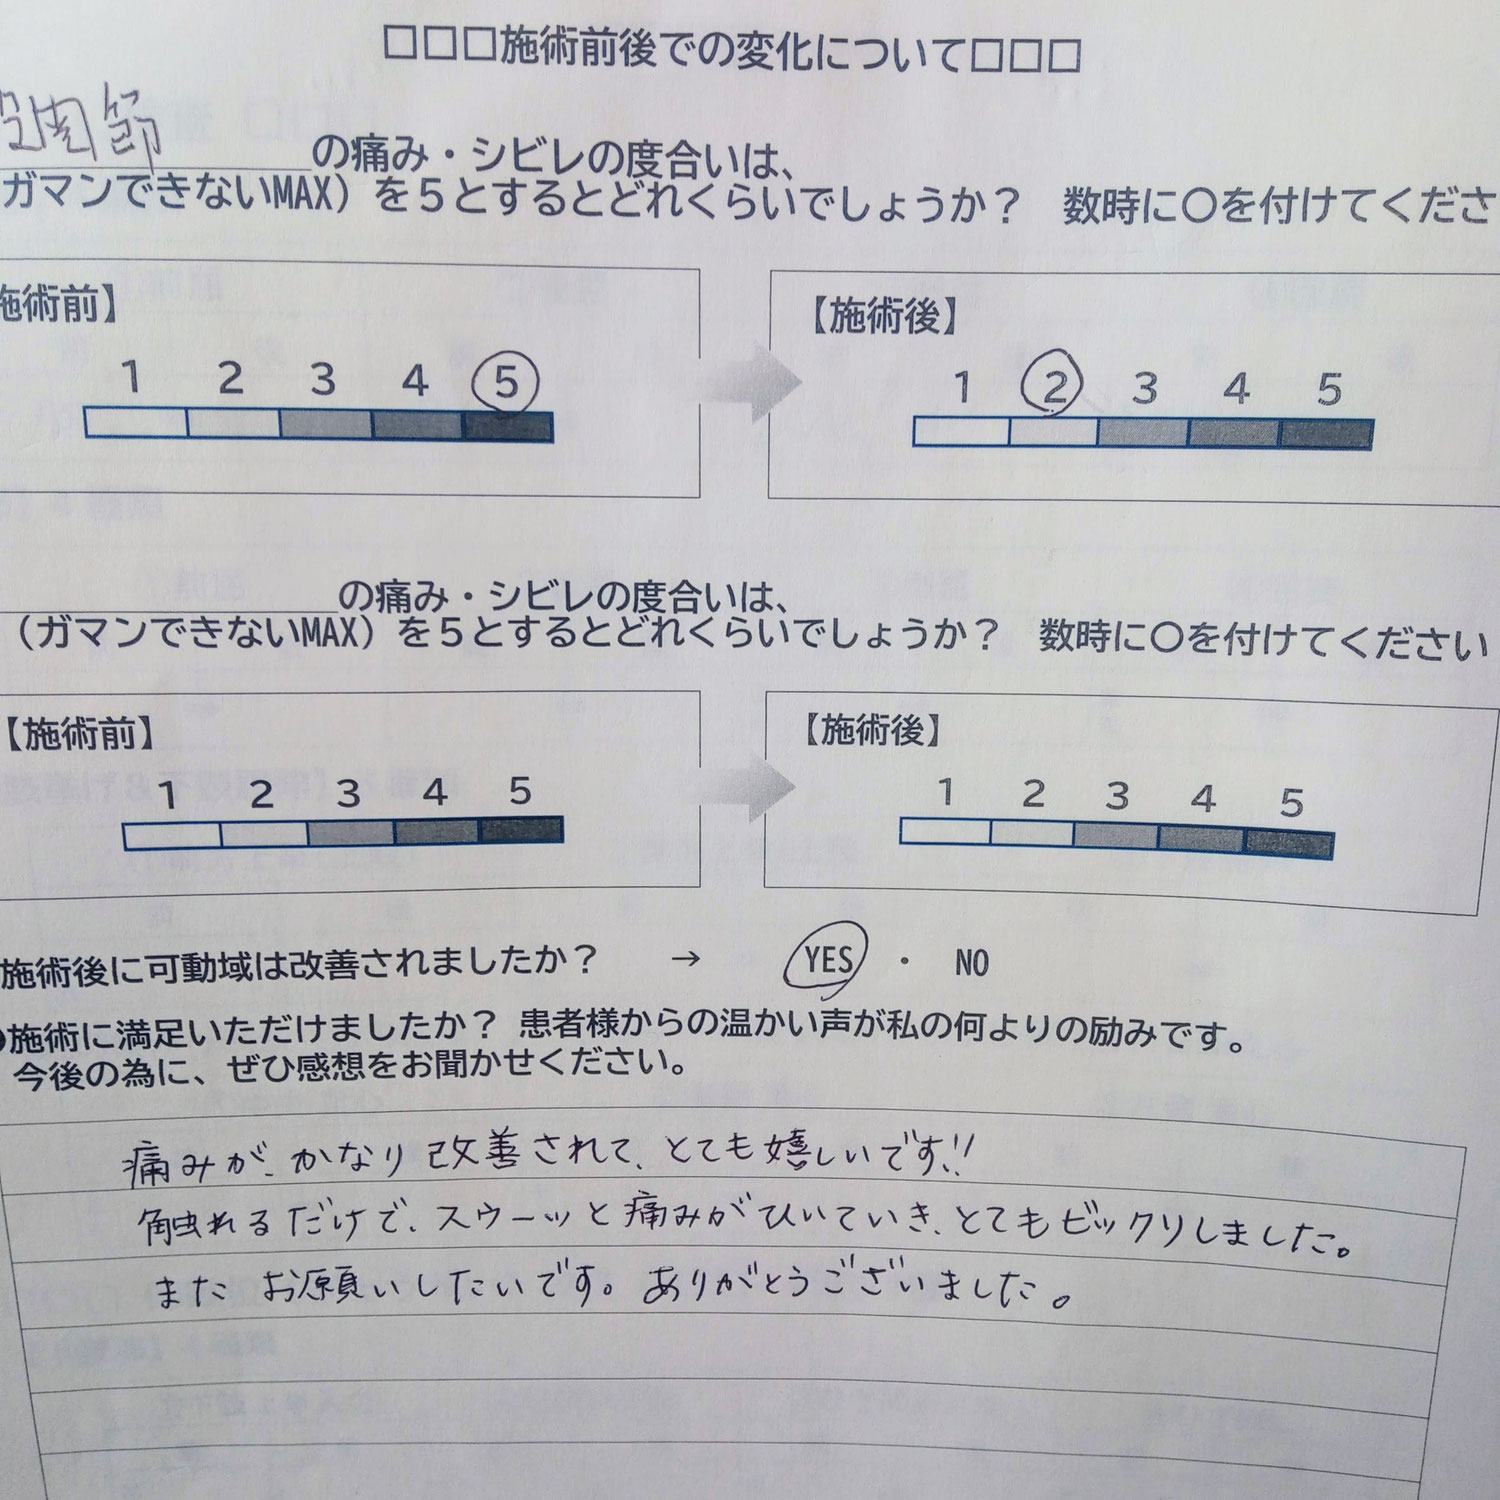 □□□施術前後での変化について□□□
股関節の痛み・シビレの度合いは、
ガマンできないMAX）を５とするとどれくらいでしょうか？　数時に〇を付けてくださ
施術前】
1 2 3 4 5
【施術後】
1 2 3 4 5
の痛み・シビレの度合いは、
（ガマンできないMAX）を５とするとどれくらいでしょうか？　数時に〇を付けてください
【施術前】
1 2 3 4 5
【施術後】
1 2 3 4 5
施術後に可動域は改善されましたか？　→　YES ・ NO
●施術に満足いただけましたか？ 患者様からの温かい声が私の何よりの励みです。
今後の為に、ぜひ感想をお聞かせください。
痛みが、かなり改善されて、とても嬉しいです!!
触れるだけで、スウーッと痛みがひいていき、とてもビックリしました。
また お願いしたいです。ありがとうございました。